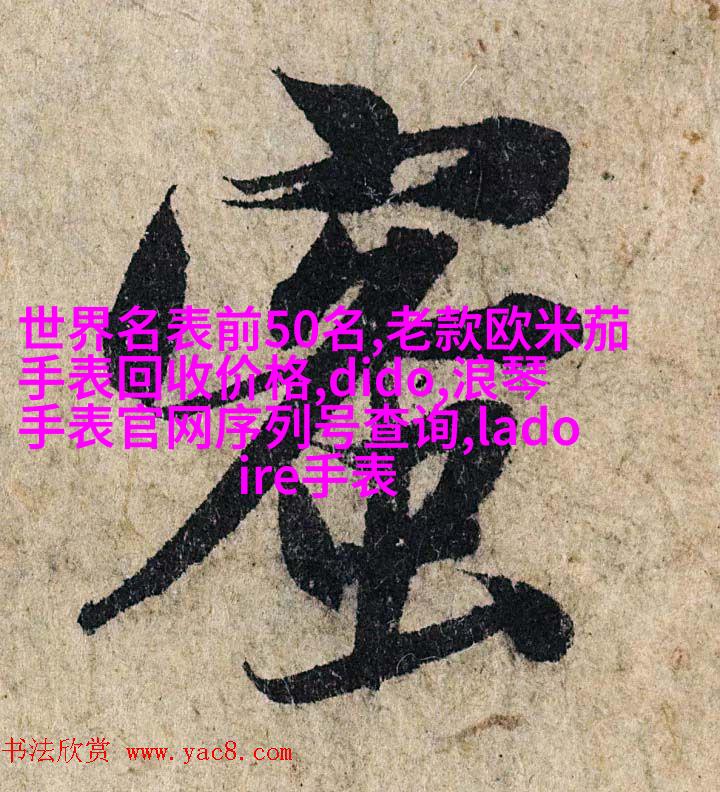 蜜
世界名表前50名,老款欧米茄
手表回收价格,dido,浪琴
手表官网序列号查询,lado
ire手表
书法欣赏 www.yac8.com